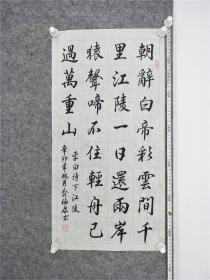 朝辭白帝彩雲間千
里江陵一日還兩岸
猿聲啼不住輕舟已
過萬重山
李白詩下江陵
辛卯年